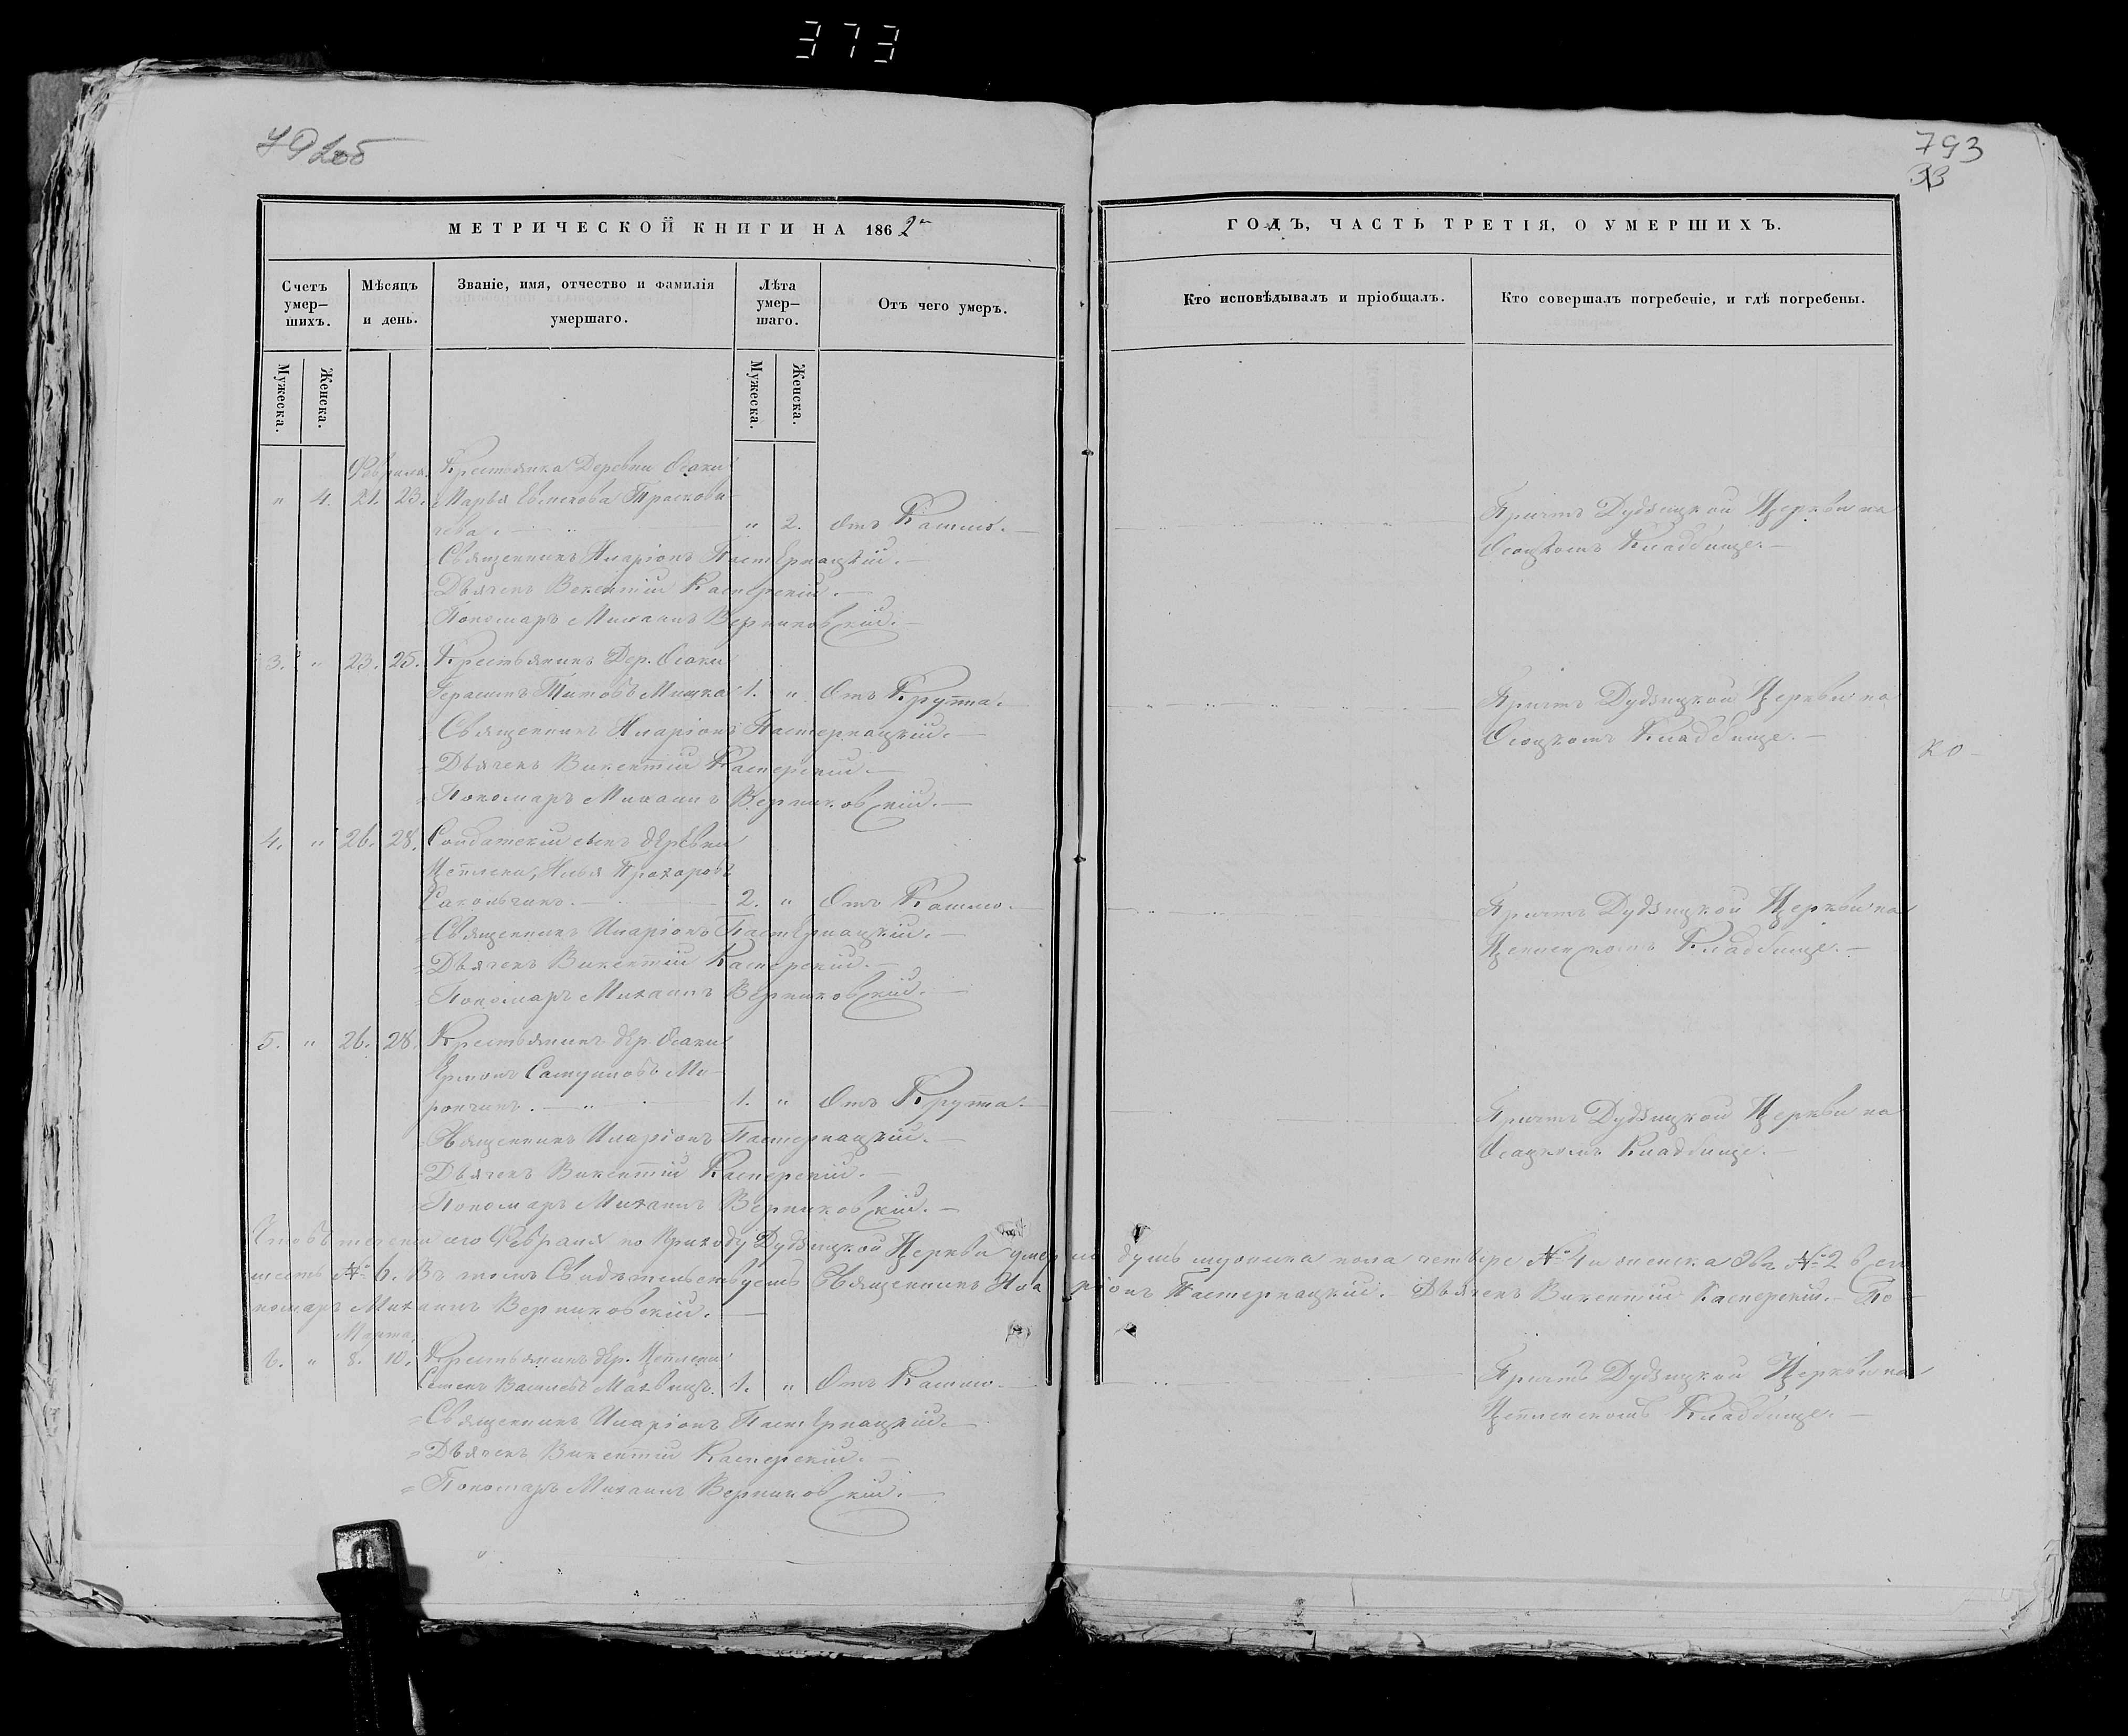 373
792об
793
33
МЕТРИЧЕСКОЙ КНИГИ НА 1862й
ГОДЪ, ЧАСТЬ ТРЕТІЯ, О УМЕРШИХЪ.
Счетъ умер—шихъ.
Мѣсяцъ и день.
Званіе, имя, отчество и фамилія умершаго.
Лѣта умер—шаго.
Отъ чего умеръ.
Кто исповѣдывалъ и пріобщалъ.
Кто совершалъ погребеніе, и гдѣ погребены.
Мужеска.
Женска.
Мужеска.
Женска.
Февраля.
Крестьянка Деревни Осоки
" 4. 21. 23. Марья
" 2. Отъ Кашлю.
Причтъ Дудзицкой Церкви на
Осоцкомъ Кладбище.
Священникъ Иларіонъ Пастернацкій.
Дьячекъ Викентій Касперскій.
Пономарь Михаилъ Верниковскій.
3. " 23. 25. Крестьянинъ Дер. Осоки
Герасимъ Титовъ Мишка 1. " Отъ Круппа.
Причтъ Дудзицкой Церкви на
Осоцкомъ Кладбище.
Священникъ Иларіонъ Пастернацкій.
Дьячекъ Викентій Касперскій.
Пономарь Михаилъ Верниковскій.
4. " 26. 28. Солдатскій сынъ деревни
Цеплени, Илья Прохоровъ
Сакольчикъ. 2. " Отъ Кашлю.
Причтъ Дудзицкой Церкви на
Кладбище.
Священникъ Иларіонъ Пастернацкій.
Дьячекъ Викентій Касперскій.
Пономарь Михаилъ Верниковскій.
5. " 26. 28. Крестьянинъ дер. Осоки
Самуиловъ Ми-
рончикъ. 1. " Отъ Круппа.
Причтъ Дудзицкой Церкви на
Осоцкомъ Кладбище.
Священникъ Иларіонъ Пастернацкій.
Дьячекъ Викентій Касперскій.
Пономарь Михаилъ Верниковскій.
Что въ теченіи сего Февраля по Приходу Дудзицкой Церкви умерло душъ мужеска пола четыре № 4 и женска две № 2 всего
шесть № 6. Въ томъ Свидетельствуемъ Священникъ Иларіонъ Пастернацкій. Дьячекъ Викентій Касперскій. По-
номарь Михаилъ Верниковскій.
Марта.
6. " 8. 10. Крестьянинъ дер. Цеплени
Семенъ 1. " Отъ Кашлю.
Причтъ Дудзицкой Церкви на
Цепленскомъ Кладбище.
Священникъ Иларіонъ Пастернацкій.
Дьячекъ Викентій Касперскій.
Пономарь Михаилъ Верниковскій.